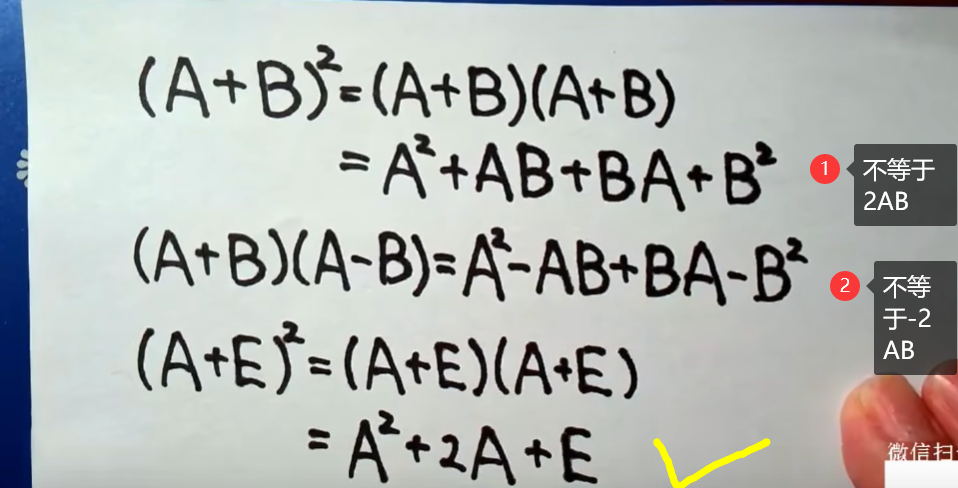 (A+B)²=(A+B)(A+B)
=A²+AB+BA+B²
1 不等于
2AB
(A+B)(A-B)=A²-AB+BA-B²
2 不等
于-2
AB
(A+E)²=(A+E)(A+E)
=A²+2A+E
微信扫